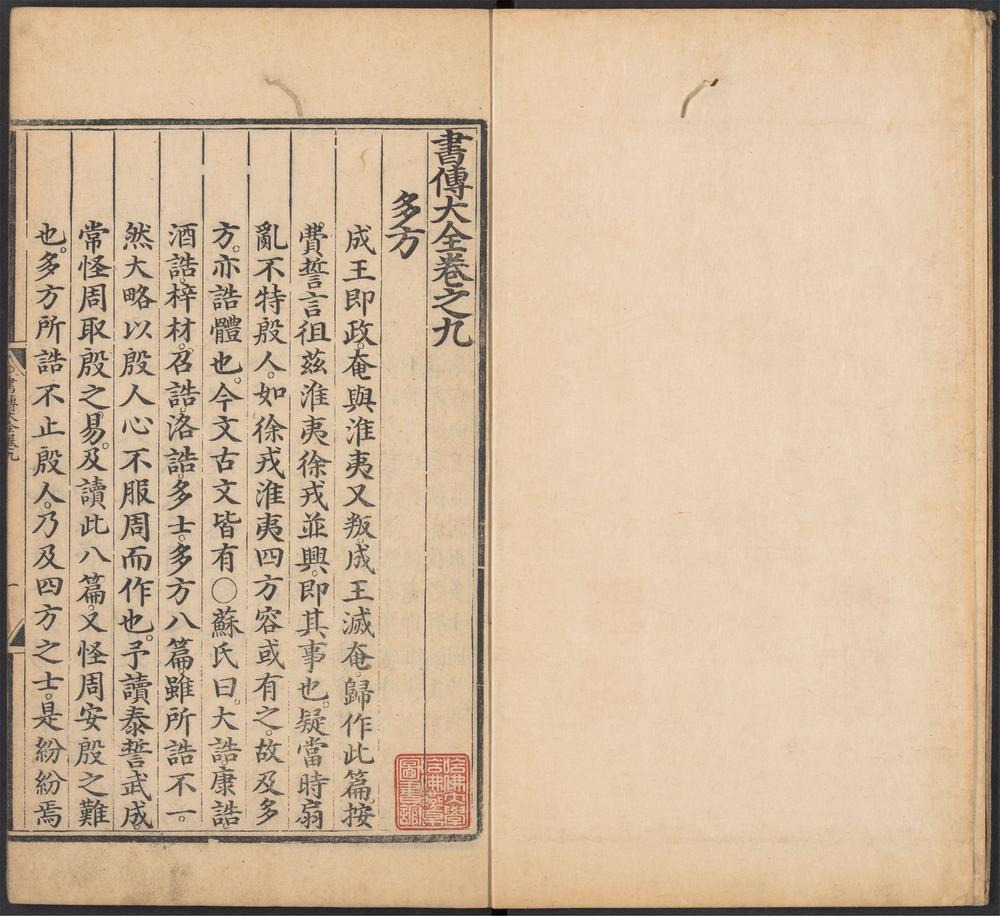 書傳大全卷之九
多方
成王即政。奄與淮夷又叛。成王滅奄。歸作此篇。按
費誓言徂茲淮夷徐戎並興。即其事也。疑當時扇
亂不特殷人。如徐戎淮夷四方容或有之。故及多
方。亦誥體也。今文古文皆有○蘇氏曰。大誥康誥。
酒誥。梓材。召誥。洛誥。多士。多方八篇。雖所誥不一。
然大略以殷人心不服周而作也。予讀泰誓武成。
常怪周取殷之易。及讀此八篇。又怪周安殷之難
也。多方所誥不止殷人。乃及四方之士。是紛紛焉
書傳大全卷九
一
哈佛大學
哈佛燕京
圖書館